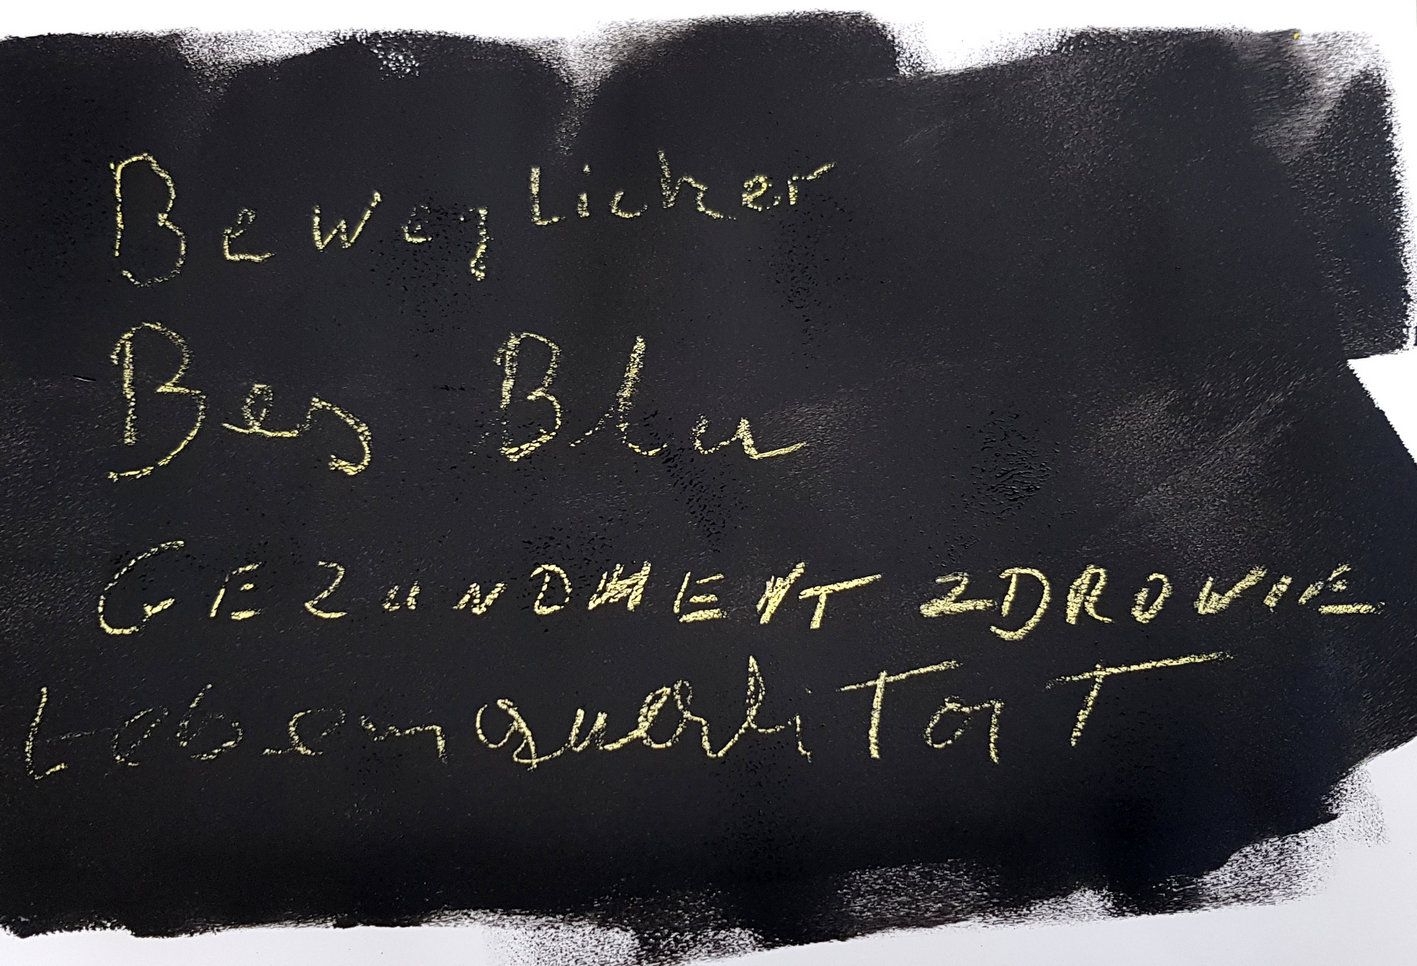 Beweglicher
Bes Blu
GEZUNDHEIT ZDROWIE
LebenqualiTaT